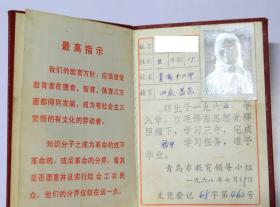 最高指示
我们的教育方针，应该使受
教育者在德育、智育、体育几方
面都得到发展，成为有社会主义
觉悟的有文化的劳动者。
知识分子之成为革命的或不
革命的，或反革命的分界，看其
是否愿意并且实行结合工农民
众，他们的分界仅仅在这一点。
姓名
性别 年龄
青岛十二中
山东 昌邑
该生于一九六 年
入学，在毛泽东思想光辉
照耀下，学习三年，完成
初中 学习任务，准予
毕业。
青岛市教育领导小组
一九六八年七月 日
文凭登记 68字第 号